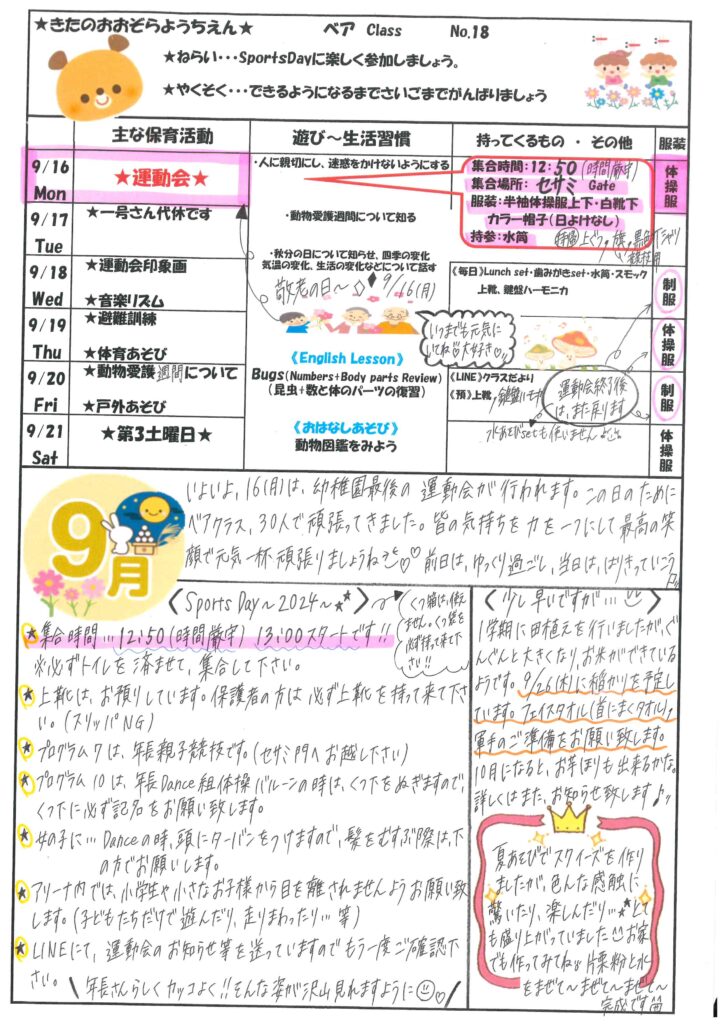 ★きたのおおぞらようちえん★ ベア Class No.18
★ねらい・・・SportsDayに楽しく参加しましょう。
★やくそく・・・できるようになるまでさいごまでがんばりましょう
主な保育活動 遊び～生活習慣 持ってくるもの ・ その他 服装
9/16
Mon
★運動会★
・人に親切にし、迷惑をかけないようにする
集合時間：12：50（時間厳守）
集合場所： セサミ Gate
服装：半袖体操服上下・白靴下
カラー帽子（日よけなし）
持参：水筒
体操服
9/17
Tue
★一号さん代休です
・動物愛護週間について知る
9/18
Wed
★運動会印象画
★音楽リズム
・秋分の日について知らせ、四季の変化
気温の変化、生活の変化などについて話す
敬老の日～☆♦9/16（月）
《毎日》Lunch set・歯みがきset・水筒・スモック
上靴、鍵盤ハーモニカ
制服
9/19
Thu
★避難訓練
★体育あそび
いつまでも元気に
いてね♡大好き♡
《English Lesson》
体操服
9/20
Fri
★動物愛護週間について
★戸外あそび
Bugs（Numbers+Body parts Review）
（昆虫+数と体のパーツの復習）
《LINE》クラスだより
《預》上靴、鍵盤ハーモニカ
運動会終了後
は、また戻ります
制服
9/21
Sat
★第3土曜日★
《おはなしあそび》
動物図鑑をみよう
水あそびsetも使いません
体操服
9月
いよいよ、16（月）は、幼稚園最後の運動会が行われます。この日のために
ベアクラス、30人で頑張ってきました。皆の気持ちを力を一つにして最高の笑
顔で元気一杯頑張りましょうね♡♡前日は、ゆっくり過ごし、当日は、はりきっていこう
〈Sports Day～2024～★★〉
くつ箱は、使え
ません。くつ袋を
必ず持って来て下
さい!!
★集合時間…12:50（時間厳守） 13:00スタートです!!
※必ずトイレを済ませて、集合して下さい。
★上靴は、お預りしています。保護者の方は必ず上靴を持って来て下さ
い。（スリッパNG）
★プログラム7は、年長親子競技です。（セサミ門へお越し下さい）
★プログラム10は、年長Dance組体操バルーンの時は、くつ下をぬぎますので、
くつ下に必ず記名をお願い致します。
★女の子に…Danceの時、頭にターバンをつけますので、髪をむすぶ際は、下
の方でお願いします。
★アリーナ内では、小学生や小さなお子様から目を離されませんようお願い致
します。（子どもたちだけで遊んだり、走りまわったり…等）
★LINEにて、運動会のお知らせ等を送っていますのでもう一度ご確認下
さい。
年長さんらしくカッコよく!!そんな姿が沢山見れますように♡
〈少し早いですが…〉
1学期に田植えを行いましたが、ぐ
んぐんと大きくなり、お米ができている
ようです。9/26（木）に稲かりを予定し
ています。フェイスタオル（首にまくタオル）、
軍手のご準備をお願い致します。
10月になると、お芋ほりも出来るかな。
詳しくはまた、お知らせ致します♪
夏あそびでスクイーズを作り
ましたが、色んな感触に
驚いたり、楽しんだり…★とて
も盛り上がっていました お家
でも作ってみてね 片栗粉と水
をまぜて～まぜて～まぜて～
完成です